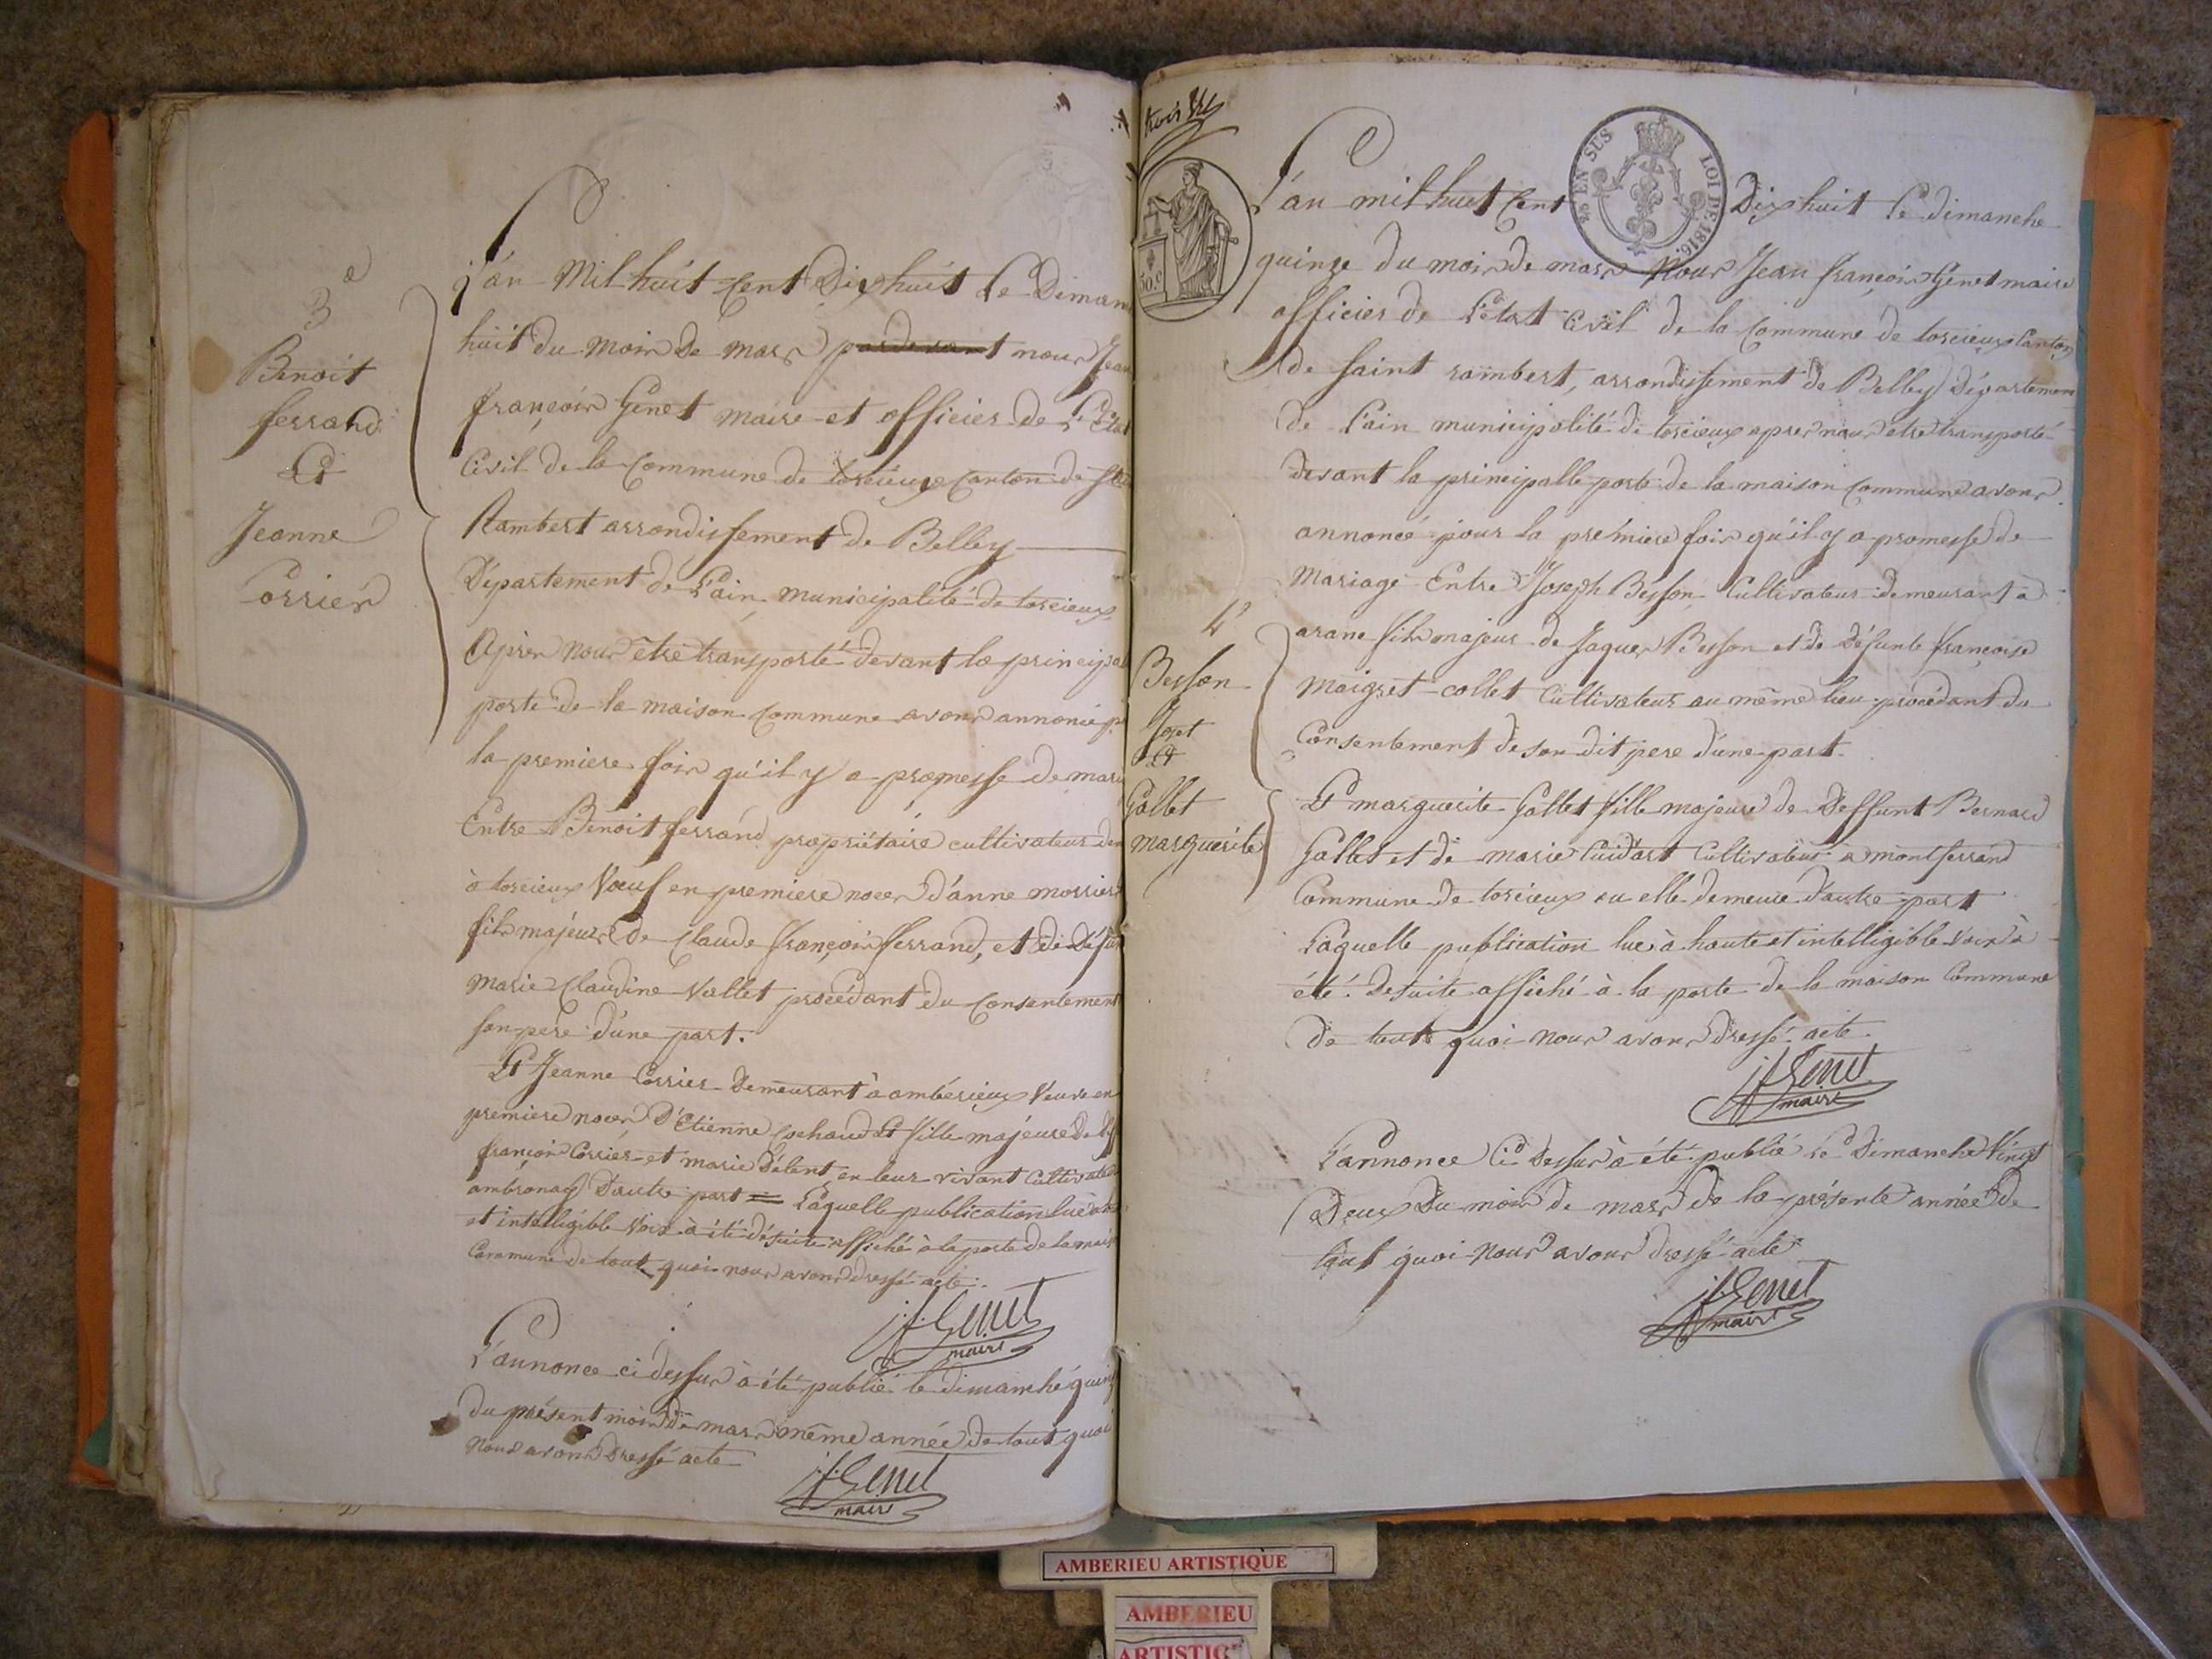 3e
Benoit
ferrand
Et
Jeanne
Corrier
L'an Mil huit Cent Dix huit Le Diman
huit du mois de mars pardevant nous Jean
françois Genet maire et officier de L'Etat
Civil de la Commune de torcieux Canton de St
Rambert arrondissement de Belley
Département de L'ain, municipalité de torcieux
Après nous être transporté devant la principa
porte de la maison Commune avons annoncé p
la premiere fois qu'il y a promesse de mari
Entre Benoit ferrand propriétaire cultivateur dem
à torcieux Vœuf en premiere noces d'anne morrier
fils majeur de Claude françois ferrand, et de Défun
Marie Claudine Vallet procédant du Consentement
son pere d'une part.
Et Jeanne Corrier Demeurant à ambérieux Veuve en
premiere noces d'Etienne Cochaud Et fille majeure de Def
françois Corrier et marie Délent, en leur vivant Cultivate
ambronay D'autre part = Laquelle publication lue à
et intelligible voix à été désuite affiché à la porte de la mais
Commune de tout quoi nous avons dressé acte.
j.f. Genet
maire
L'annonce ci dessus à été publié le dimanche quinz
du présent mois de mars même année de tout quoi
nous avons dressé acte
j.f. Genet
maire
trois
50.c
25 EN SUS
LOI DE 1816.
L'an mil huit Cent Dix huit Le dimanche
quinze du mois de mars Nous Jean françois Genet maire
officier de L'état Civil de la Commune de torcieux Canton
de Saint rambert, arrondissement de Belley Département
de L'ain municipalité de torcieux après nous etre transporté
devant la principalle porte de la maison Commune avons
annoncé pour la prémiere fois qu'il y a promesse de
Mariage Entre Joseph Besson Cultivateur demeurant à
arane fils majeur de Jaques Besson et de Défunte françoise
Maigret-collet Cultivateur au même lieu procédant du
Consentement de son dit pere d'une part.
Et marguerite Gallet fille majeure de Deffunt Bernard
Gallet et de marie Cuidart Cultivateur à montferrand
Commune de torcieux ou elle demeure d'autre part
Laquelle publication lue à haute et intelligible voix à
été desuite affiché à la porte de la maison Commune
de tout quoi nous avons dressé acte.
j f Genet
maire
L'annonce Ci Dessus à été publié Le Dimanche Vingt
Deux Du mois de mars de la présente année de
tout quoi nous avons dressé acte
j f Genet
maire
4e
Besson
Joset
Et
Gallet
marguerite
AMBERIEU ARTISTIQUE
AMBERIEU
ARTISTIQ